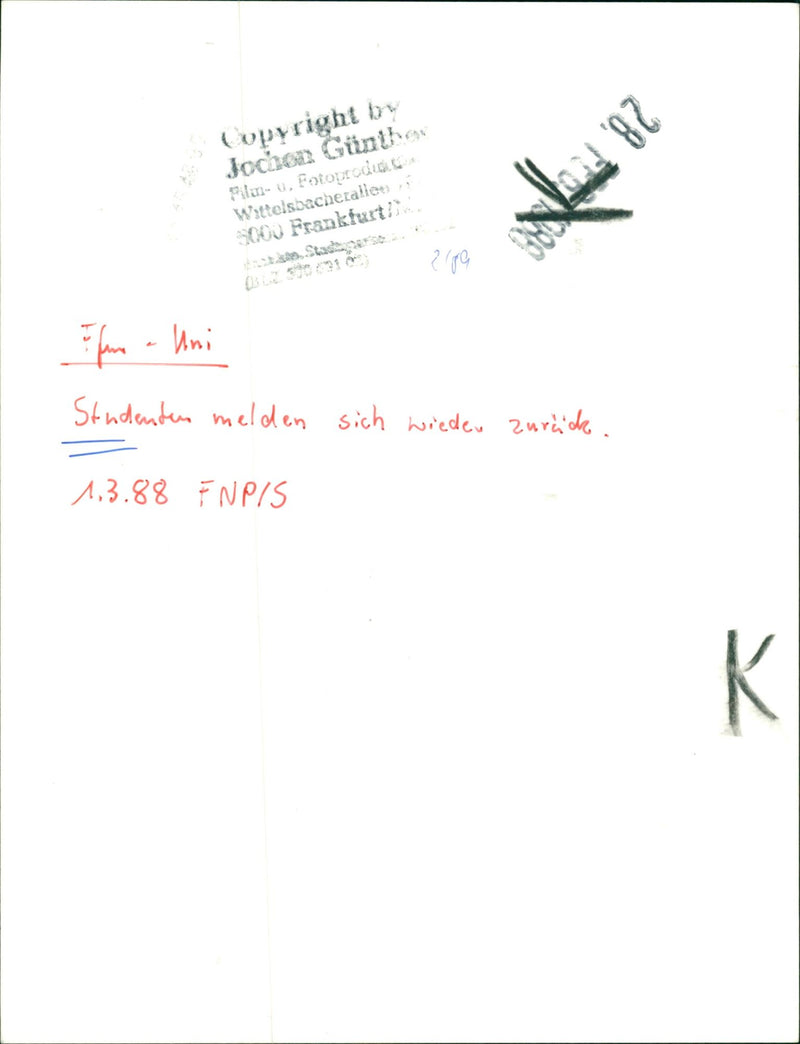 Copyright by
Jochen Günther
Film- u. Fotoproduktion
Wittelsbacherallee
6000 Frankfurt/M.
28. FEB. 1988
K
Ffm - Uni
Studenten melden sich wieder zurück.
1.3.88 FNP/S
K